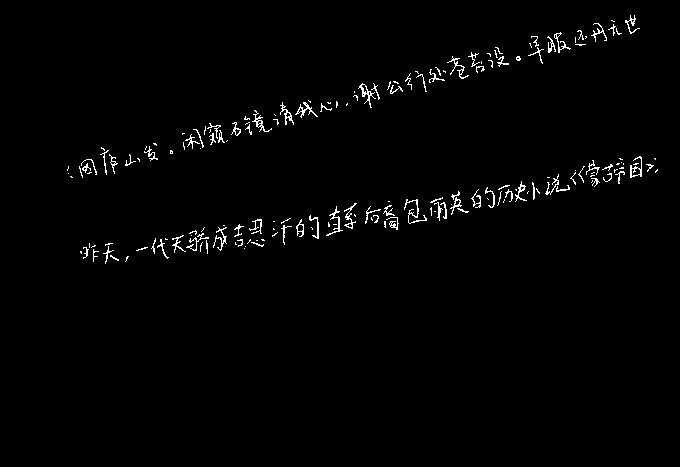 因庐山发。闲窥石镜清我心,谢公行处苍苔没。早服还丹无世
昨天,一代天骄成吉思汗的直系后裔包丽英的历史小说《蒙古帝国》